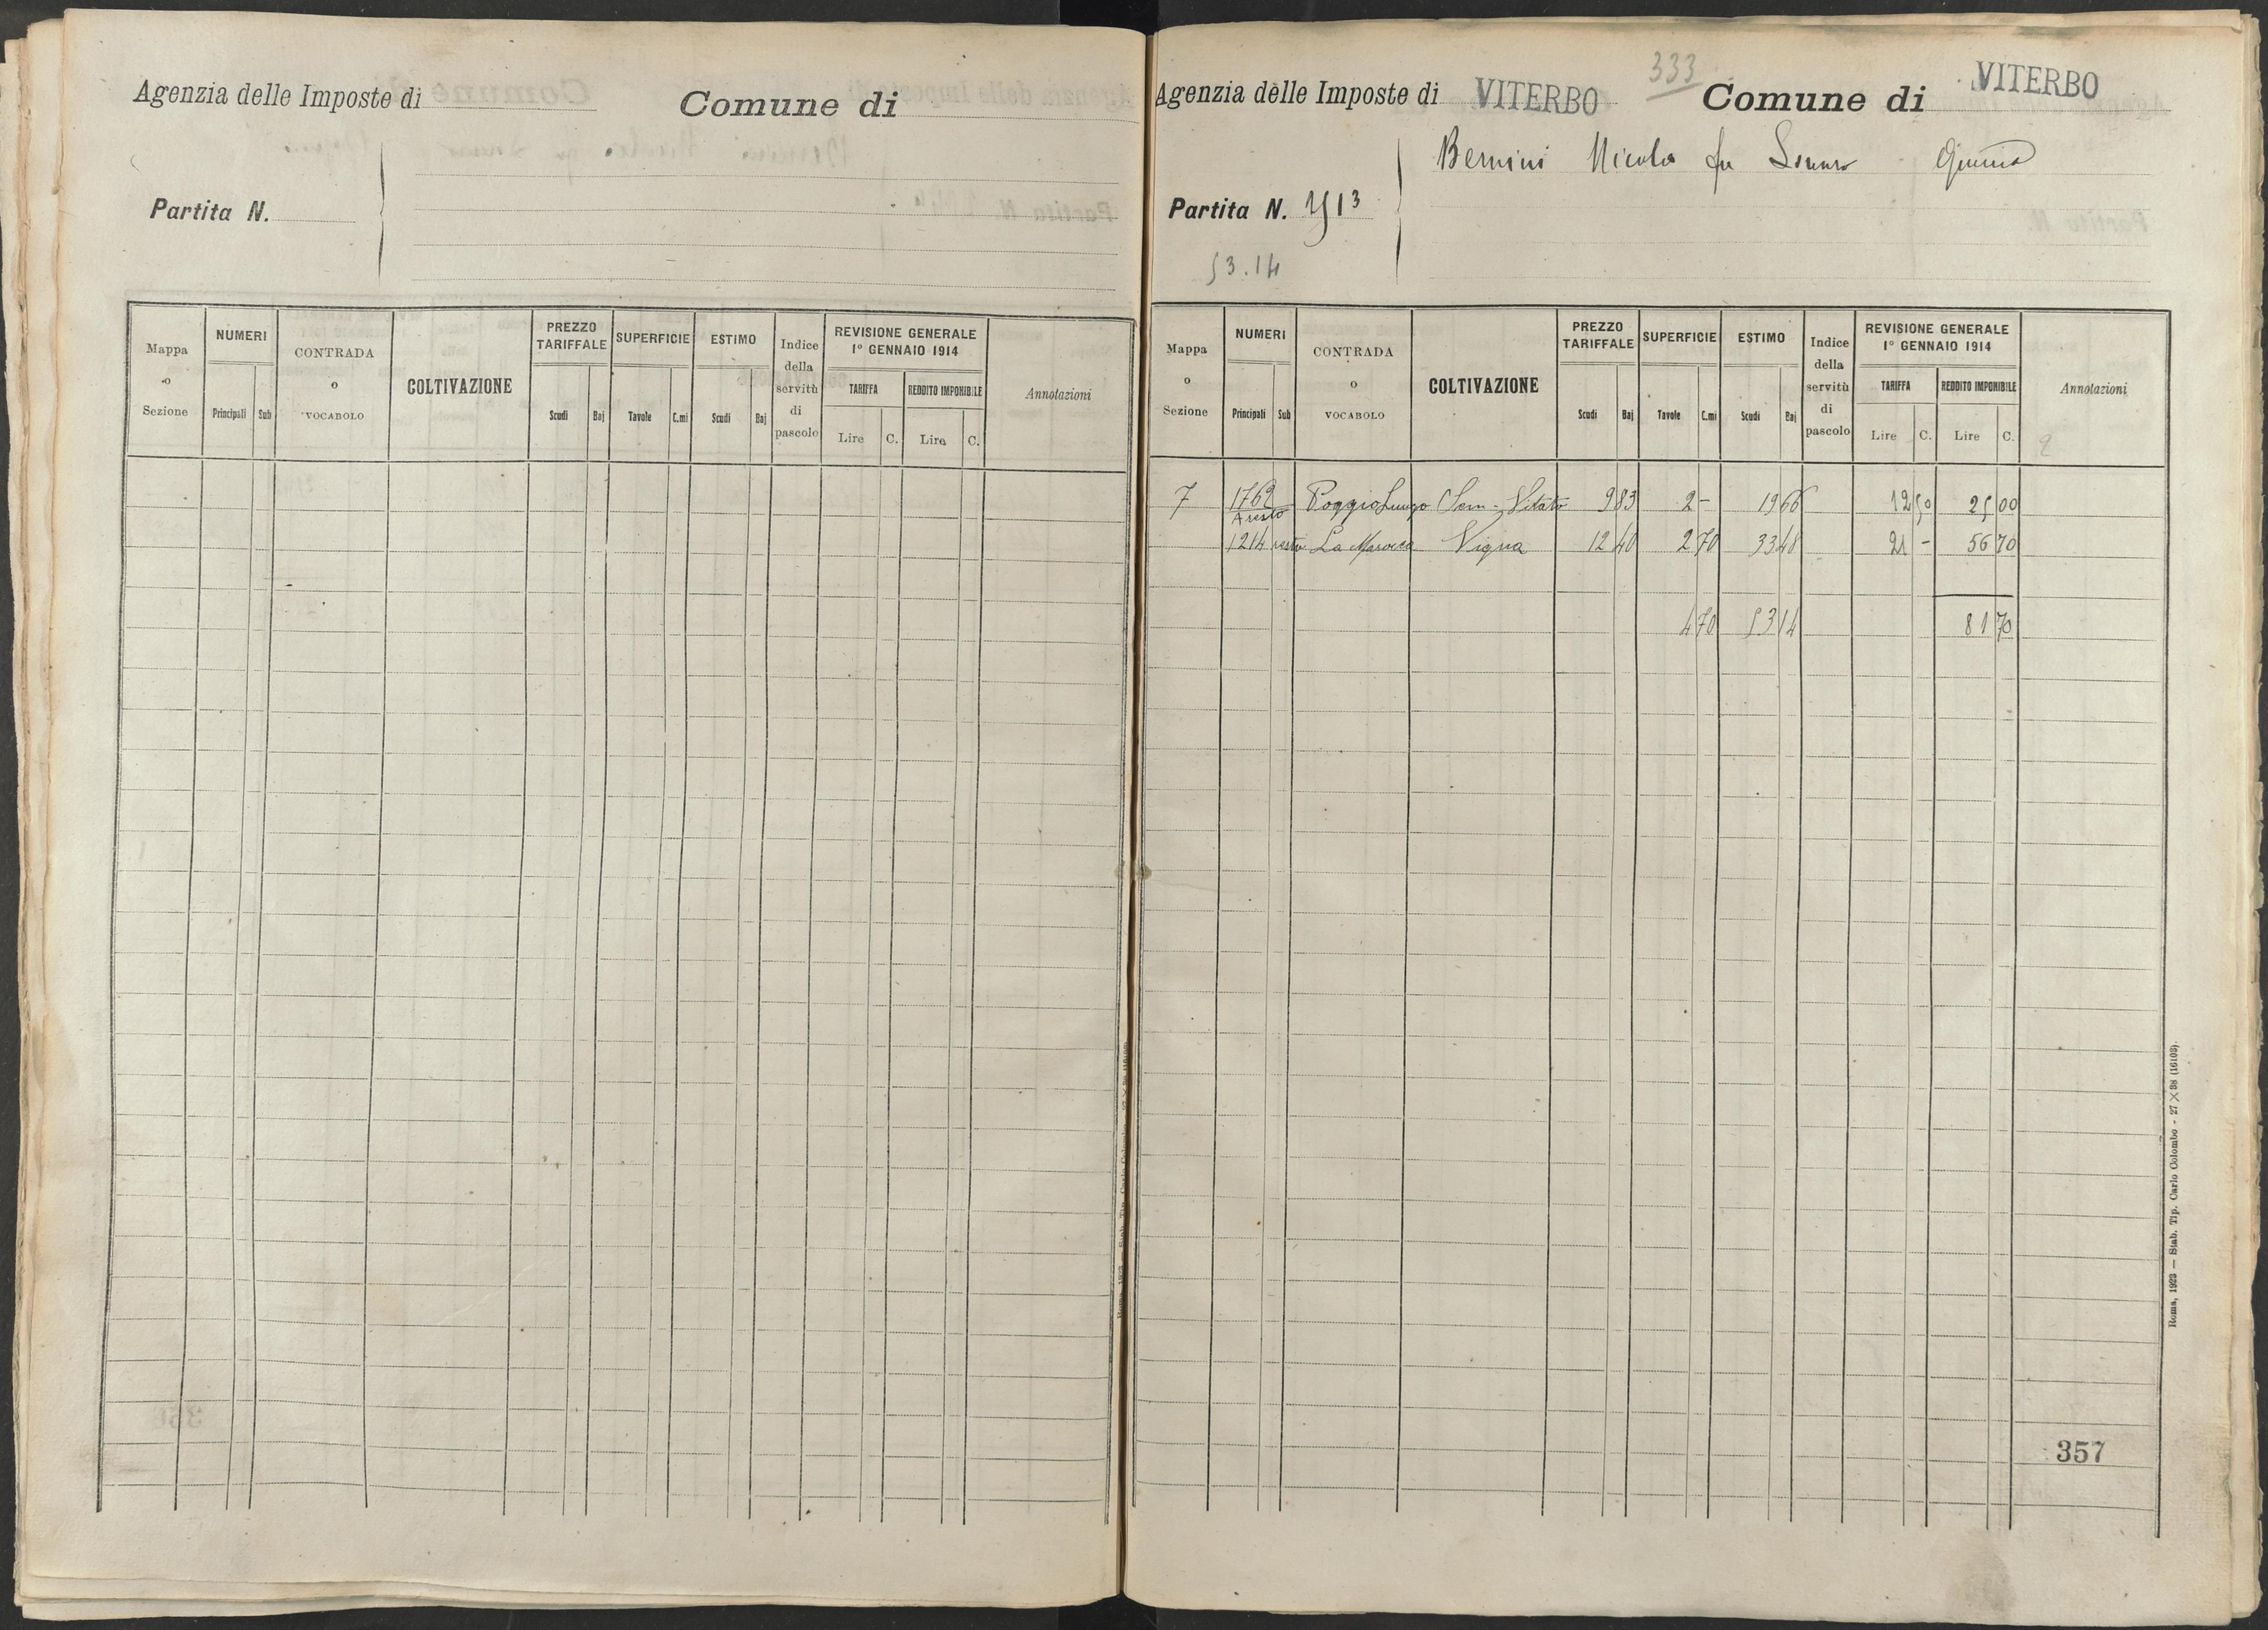 Agenzia delle Imposte di
Comune di
Partita N.
Mappa o Sezione
NUMERI
Principali Sub
CONTRADA o VOCABOLO
COLTIVAZIONE
PREZZO TARIFFALE
Scudi Baj
SUPERFICIE
Tavole C.mi
ESTIMO
Scudi Baj
Indice della servitù di pascolo
REVISIONE GENERALE
1° GENNAIO 1914
TARIFFA REDDITO IMPONIBILE
Lire C. Lire C.
Annotazioni
333
Agenzia delle Imposte di VITERBO Comune di VITERBO
Bernini Nicola fu
Partita N.
53.14
Mappa o Sezione
NUMERI
Principali Sub
CONTRADA o VOCABOLO
COLTIVAZIONE
PREZZO TARIFFALE
Scudi Baj
SUPERFICIE
Tavole C.mi
ESTIMO
Scudi Baj
Indice della servitù di pascolo
REVISIONE GENERALE
1° GENNAIO 1914
TARIFFA REDDITO IMPONIBILE
Lire C. Lire C.
Annotazioni
7 1762 A resto Poggio Lungo Sem. Vitato 9 83 2 - 19 66 12 50 25 00
1214 resto La Marocca Vigna 12 40 2 70 33 48 21 - 56 70
4 70 53 14 81 70
357
Roma, 1923 — Stab. Tip. Carlo Colombo - 27 × 38 (16103).